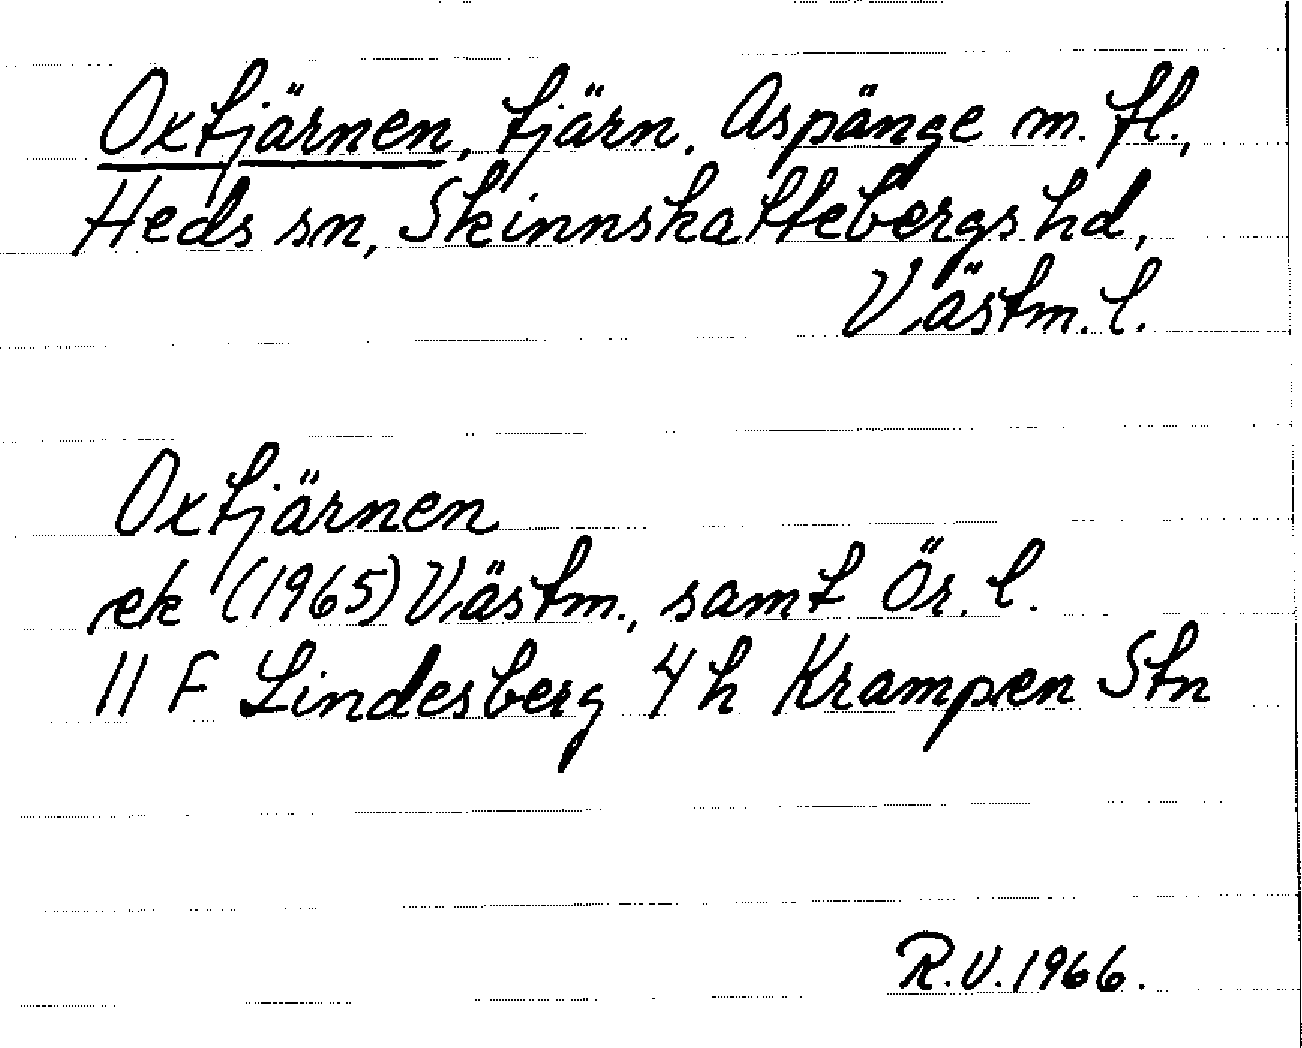 Oxtjärnen, tjärn. Aspänge m. fl.,
Heds sn, Skinnskattebergs hd,
Västm. l.
Oxtjärnen
ek (1965) Västm., samt Ör. l.
11 F Lindesberg 4 h Krampen Stn
R.V. 1966.